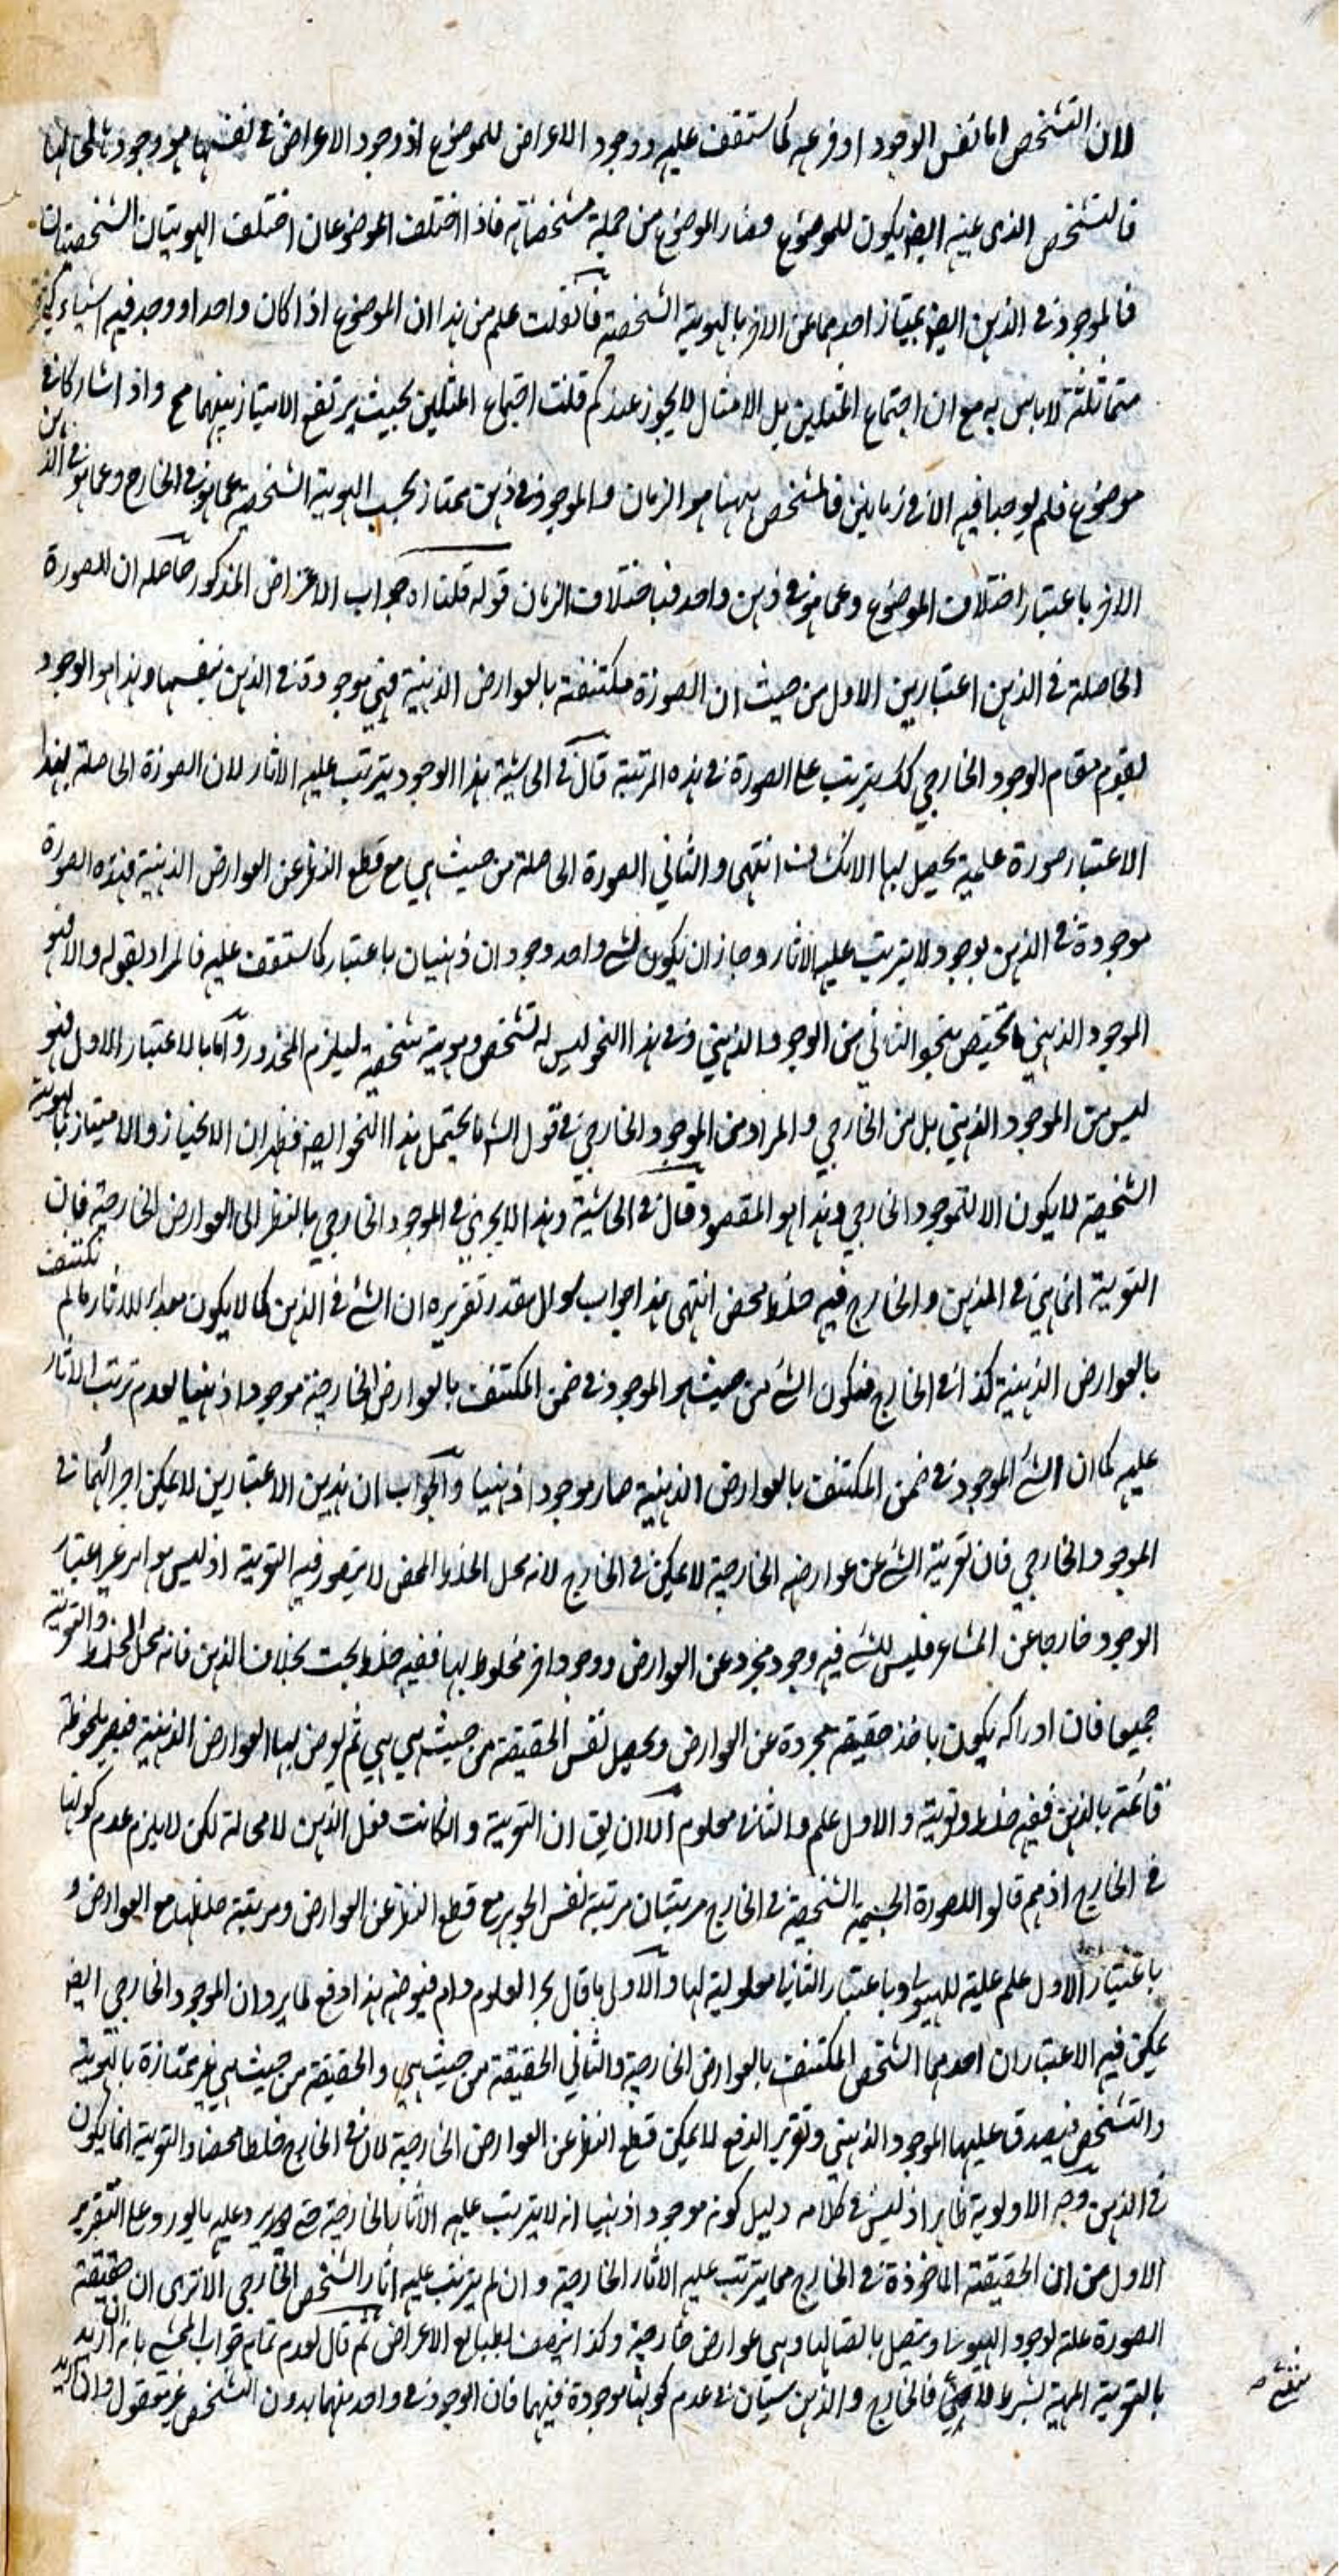 لان التشخص اما نفس الوجود او فرعه كما ستقف عليه ووجود الاعراض للموضوع اذ وجود الاعراض في نفسها هو وجودها لمحالها
فالتشخص الذي عينه ايضا يكون للموضوع فصار الموضوع من جملة مشخصاته فاذا اختلف الموضوعان اختلف الهويتان الشخصيتان
فالموجود في الذهن ايضا يمتاز احدهما عن الاخر بالهوية الشخصية فان قلت علم من هذا ان الموضوع اذا كان واحدا ووجد فيه اشياء كثيرة
متماثلة لا باس به مع ان اجتماع المثلين بل الامثال لا يجوز عندكم قلت اجتماع المثلين بحيث يرتفع الامتياز بينهما مح واذا شاركا في
موضوع فلم يوجدا فيه الا في زمانين فالمشخص ههنا هو الزمان والموجود في ذهن ممتاز بحسب الهوية الشخصية عما هو في الخارج وعما هو في الذهن
الاخر باعتبار اختلاف الموضوع وعما هو في ذهن واحد فباختلاف الزمان قوله قلنا اه جواب الاعتراض المذكور حاصله ان للصورة
الحاصلة في الذهن اعتبارين الاول من حيث ان الصورة مكتنفة بالعوارض الذهنية فهي موجودة في الذهن بنفسها وهذا هو الوجود
يقوم مقام الوجود الخارجي كك يترتب على الصورة في هذه المرتبة قال في الحاشية هذا الوجود يترتب عليه الاثار لان الصورة الحاصلة بهذا
الاعتبار صورة علمية يحصل لها الانكشاف انتهى والثاني الصورة الحاصلة من حيث هي مع قطع النظر عن العوارض الذهنية فهذه الصورة
موجودة في الذهن بوجود لا يترتب عليه الاثار وجاز ان يكون لشئ واحد وجودان ذهنيان باعتبار كما ستقف عليه فالمراد بقوله والا فهو
الموجود الذهني ما يختص بنحو الثاني من الوجود الذهني وفي هذا النحو ليس له تشخص وهوية شخصية ليلزم المحذور واما بالاعتبار الاول فهو
ليس من الموجود الذهني بل من الخارجي والمراد من الموجود الخارجي في قول الشه ما يحتمل هذا النحو ايضا فظهر ان الانحياز والامتياز بالهوية
الشخصية لا يكون الا للموجود الخارجي وهذا هو المقصود وقال في الحاشية وهذا لا يجري في الموجود الخارجي بالنظر الى العوارض الخارجية فان
التعرية انما هي في الذهن والخارج فيه خلط محض انتهى هذا جواب سوال مقدر تقريره ان الشئ في الذهن كما لا يكون مبدأ للاثار ما لم يكتنف
بالعوارض الذهنية كذا في الخارج فيكون الشئ من حيث هو الموجود في ضمن المكتنف بالعوارض الخارجية موجودا ذهنيا لعدم ترتب الاثار
عليه كما ان الشئ الموجود في ضمن المكتنف بالعوارض الذهنية صار موجودا ذهنيا والجواب ان هذين الاعتبارين لا يمكن اجرائهما في
الموجود الخارجي فان تعرية الشئ عن عوارضه الخارجية لا يمكن في الخارج لانه محل الخلط المحض لا يتصور فيه التعرية اذ ليس هو امر غير اعتبار
الوجود خارجا عن المشاعر فليس للشئ فيه وجود مجرد عن العوارض ووجود اخر مخلوط بها ففيه خلط بحت بخلاف الذهن فانه محل الخلط والتعرية
جميعا فان ادراكه يكون باخذ حقيقة مجردة عن العوارض ويحصل نفس الحقيقة من حيث هي هي ثم يعرض لها العوارض الذهنية فيصير مخلوطة
قائمة بالذهن ففيه خلط وتعرية والاول علم والثاني معلوم الا ان يق ان التعرية وان كانت فعل الذهن لا محالة لكن لا يلزم عدم كونها
في الخارج اذ هم قالوا للصورة الجسمية الشخصية في الخارج مرتبتان مرتبة نفس الجوهر مع قطع النظر عن العوارض ومرتبة خلطها مع العوارض و
باعتبار الاول علم علية للهيولى وباعتبار الثاني معلولية لها والاولى ما قال بحر العلوم دام فيوضه هذا دفع لما يرد ان الموجود الخارجي ايضا
يمكن فيه الاعتباران احدهما الشخص المكتنف بالعوارض الخارجية والثاني الحقيقة من حيث هي والحقيقة من حيث هي غير ممتازة بالهوية
والتشخص فيصدق عليها الموجود الذهني وتقرير الدفع لا يمكن قطع النظر عن العوارض الخارجية لان في الخارج خلطا محضا والتعرية انما يكون
في الذهن وجه الاولوية ظاهر اذ ليس في كلامه دليل كونه موجودا ذهنيا انه لا يترتب عليه الاثار الخارجية حتى يرد عليه ما يورد على التقرير
الاول من ان الحقيقة الماخوذة في الخارج مما يترتب عليه الاثار الخارجية وان لم يترتب عليه اثار الشخص الخارجي الا ترى ان حقيقة
الصورة علة لوجود الهيولى ويتصل باتصالها وهي عوارض خارجية وكذا يتصف بطبايع الاعراض ثم قال لعدم تمام جواب المحشي بانه ان اريد
بالتعرية المهية بشرط لا شئ فالخارج والذهن سيان في عدم كونها موجودة فيهما فان الوجود في واحد منهما بدون التشخص غير معقول وان اريد